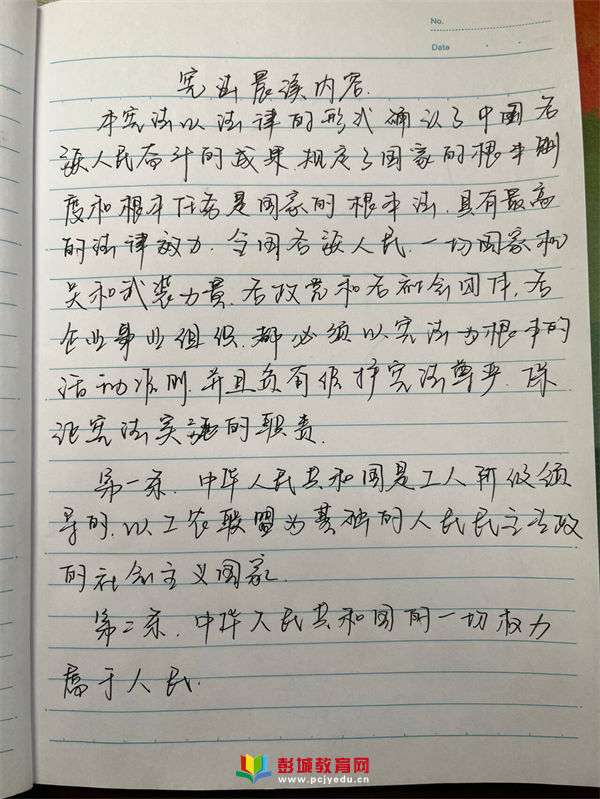 No.
Date
宪法晨读内容.
本宪法以法律的形式确认了中国各
族人民奋斗的成果,规定了国家的根本制
度和根本任务是国家的根本法,具有最高
的法律效力.全国各族人民.一切国家机
关和武装力量.各政党和各社会团体.各
企业事业组织.都必须以宪法为根本的
活动准则.并且负有维护宪法尊严.保
证宪法实施的职责.
第一条.中华人民共和国是工人阶级领
导的.以工农联盟为基础的人民民主专政
的社会主义国家.
第二条.中华人民共和国的一切权力
属于人民.
彭城教育网
www.pcjyedu.cn